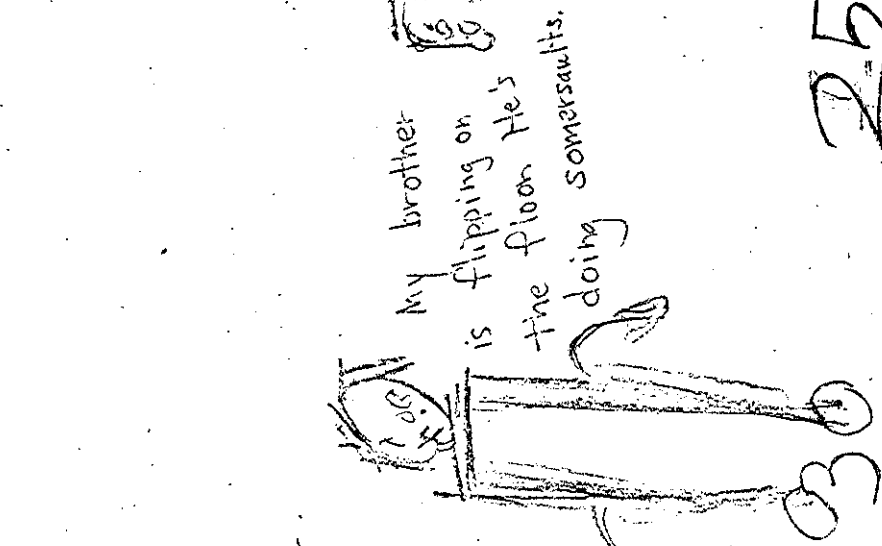 My brother
is flipping on
the floor. He's
doing somersaults.
25